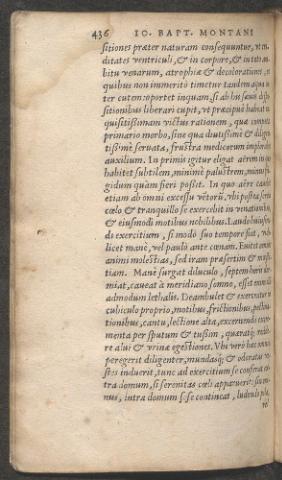 436 IO. BAPT. MONTANI
sitiones præter naturam consequuntur, ut cru
ditates ventriculi, & in corpore, & in toto am
bitu venarum, atrophiæ & decolorationes, ex
quibus non immeritò timetur tandem aqua in
ter cutem: oportet inquam, si ab his
sitionibus liberari cupit, ut præcipuè habeat ex
quisitißimam victus rationem, quæ convenit
primario morbo, sine qua diutißimè & diligen
tißimè servata, frustra medicorum imploratur
auxilium. In primis igitur eligat aërem in quo
habitet subtilem, minimè palustrem, minus fri
gidum quàm fieri poßit. In quo aëre caveat
etiam ab omni excessu vētorū, ubi posset à sereno
cœlo & tranquillo se exercebit in venationibus,
& eiusmodi motibus nobilibus. Laudo huiusmo
di exercitium, si modò suo tempore fiat, vide
licet manè, vel paulò ante cœnam. Evitet omnes
animi molestias, sed iram præsertim & mœsti
tiam. Manè surgat diluculo, septem horis dor
miat, caveat à meridiano somno, esset enim ei
admodum lethalis. Deambulet & exerceatur in
cubiculo proprio, motibus, frictionibus, pectina
tionibus, cantu, lectione alta, excernendo excre
menta per sputum & tußim, curatq́; reddere
re alui & urinæ egestiones. Vbi verò hæc omnia
peregerit diligenter, mundasq́; & odoratas ve
stes induerit, tunc ad exercitium se conferat ex
tra domum, si serenitas cœli apparuerit: sin mi
nus, intra domum se contineat, ludendo pila,